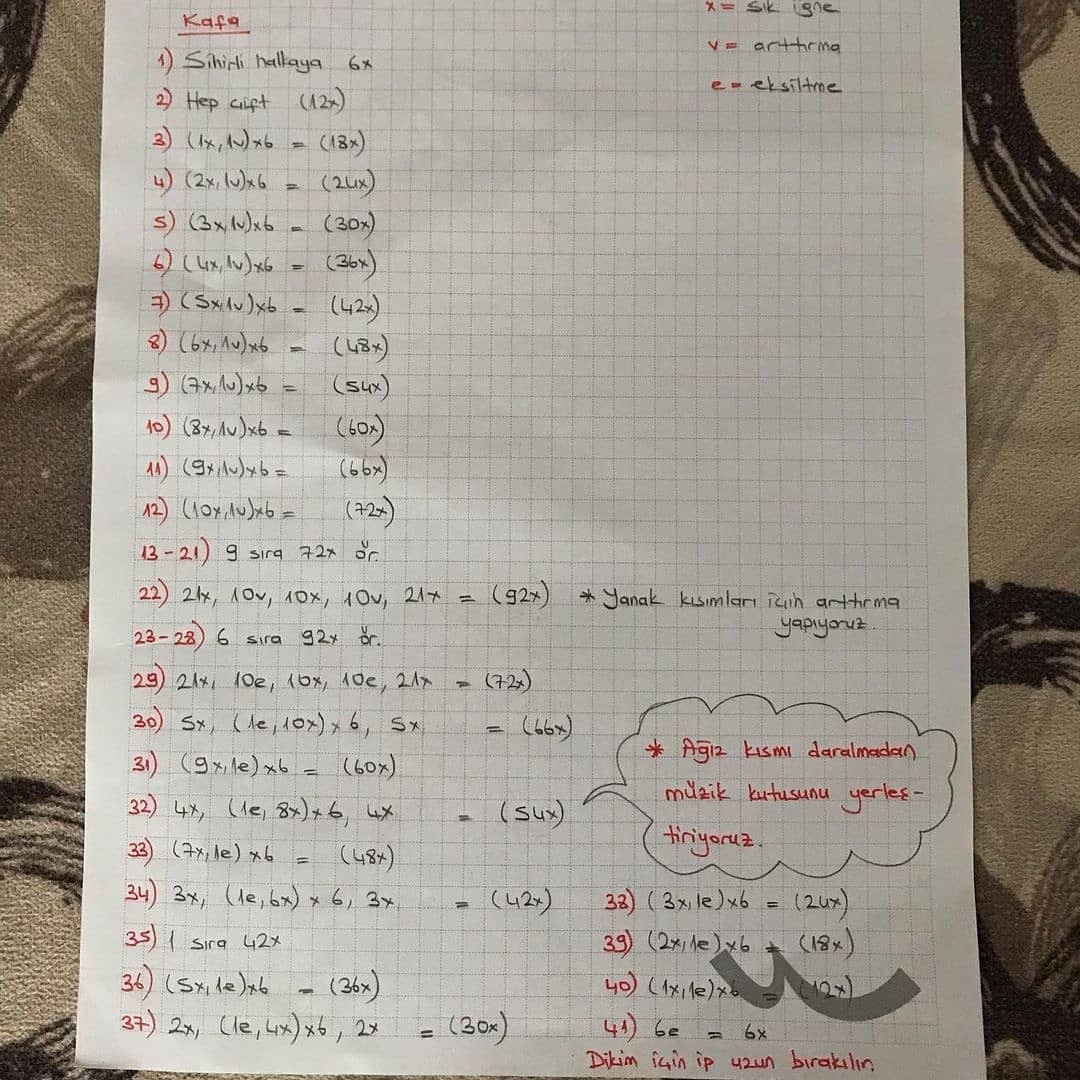 x = sık iğne
v = arttırma
e = eksiltme
Kafa
1) Sihirli halkaya 6x
2) Hep çift (12x)
3) (1x, 1v)x6 = (18x)
4) (2x, 1v)x6 = (24x)
5) (3x, 1v)x6 = (30x)
6) (4x, 1v)x6 = (36x)
7) (5x, 1v)x6 = (42x)
8) (6x, 1v)x6 = (48x)
9) (7x, 1v)x6 = (54x)
10) (8x, 1v)x6 = (60x)
11) (9x, 1v)x6 = (66x)
12) (10x, 1v)x6 = (72x)
13-21) 9 sıra 72x ör.
22) 21x, 10v, 10x, 10v, 21x = (92x) * Yanak kısımları için arttırma
yapıyoruz.
23-28) 6 sıra 92x ör.
29) 21x, 10e, 10x, 10e, 21x = (72x)
30) 5x, (1e, 10x) x 6, 5x = (66x)
31) (9x, 1e) x6 = (60x)
32) 4x, (1e, 8x) x 6, 4x = (54x)
33) (7x, 1e) x6 = (48x)
34) 3x, (1e, 6x) x 6, 3x = (42x)
35) 1 sıra 42x
36) (5x, 1e)x6 = (36x)
37) 2x, (1e, 4x)x6, 2x = (30x)
* Ağız kısmı daralmadan
müzik kutusunu yerleş-
tiriyoruz.
38) (3x, 1e)x6 = (24x)
39) (2x, 1e)x6 = (18x)
40) (1x, 1e)x6 = (12x)
41) 6e = 6x
Dikim için ip uzun bırakılır.